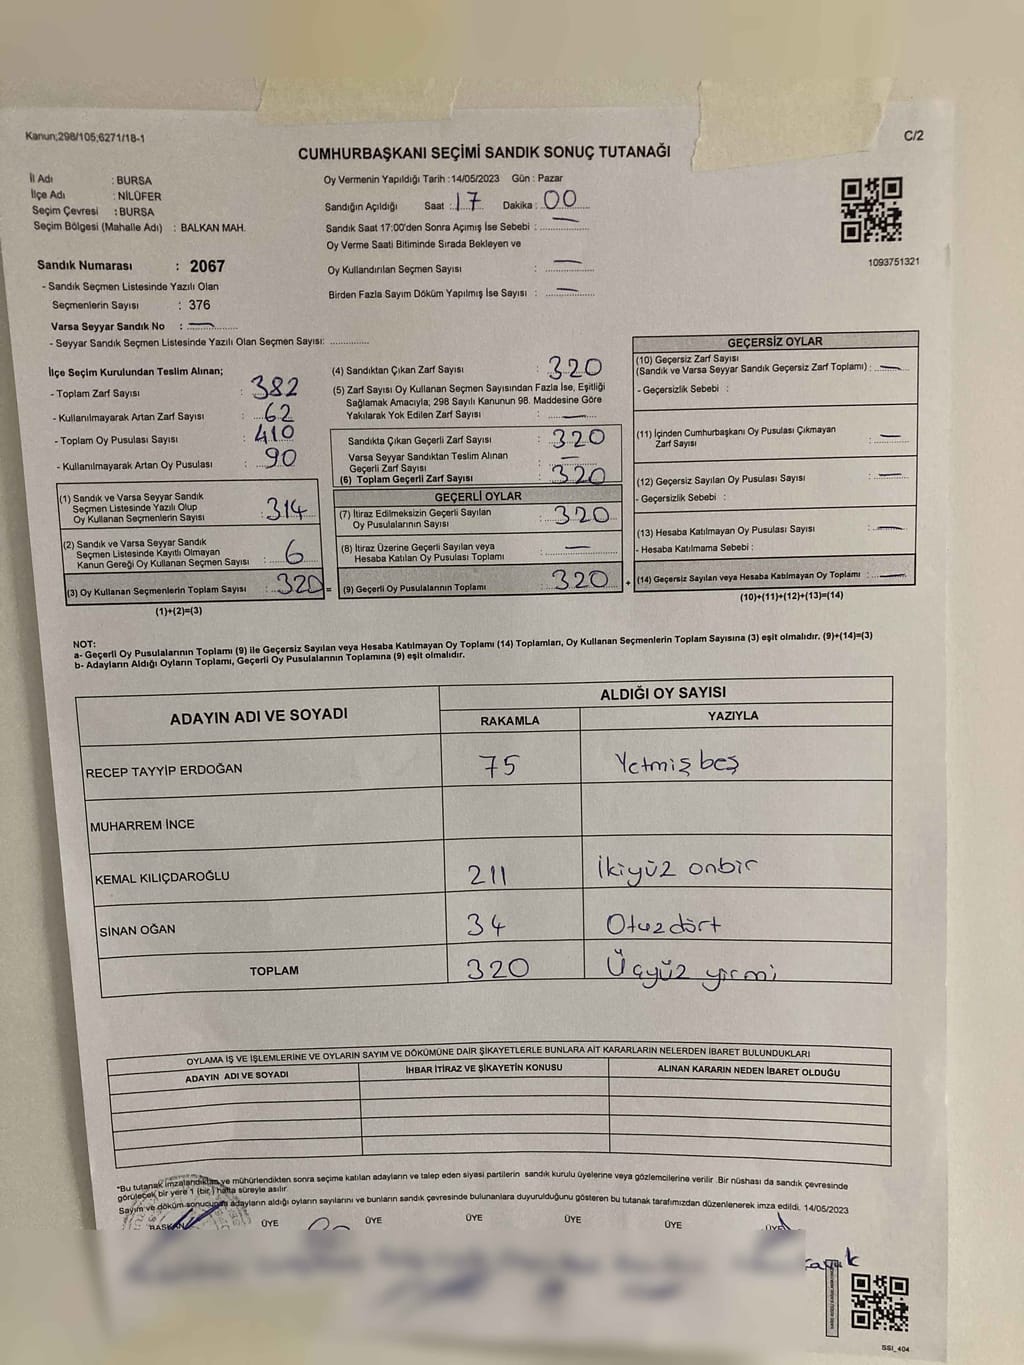 Kanun;298/105;6271/18-1
C/2
CUMHURBAŞKANI SEÇİMİ SANDIK SONUÇ TUTANAĞI
İl Adı : BURSA
İlçe Adı : NİLÜFER
Seçim Çevresi : BURSA
Seçim Bölgesi (Mahalle Adı) : BALKAN MAH.
Oy Vermenin Yapıldığı Tarih :14/05/2023 Gün : Pazar
Sandığın Açıldığı Saat : 17 Dakika : 00
Sandık Saat 17:00'den Sonra Açımış İse Sebebi : —
Oy Verme Saati Bitiminde Sırada Bekleyen ve
Oy Kullandırılan Seçmen Sayısı : —
Birden Fazla Sayım Döküm Yapılmış İse Sayısı : —
1093751321
Sandık Numarası : 2067
- Sandık Seçmen Listesinde Yazılı Olan
Seçmenlerin Sayısı : 376
Varsa Seyyar Sandık No : —
- Seyyar Sandık Seçmen Listesinde Yazılı Olan Seçmen Sayısı: ..............
İlçe Seçim Kurulundan Teslim Alınan;
- Toplam Zarf Sayısı : 382
- Kullanılmayarak Artan Zarf Sayısı : 62
- Toplam Oy Pusulası Sayısı : 410
- Kullanılmayarak Artan Oy Pusulası : 90
(1) Sandık ve Varsa Seyyar Sandık
Seçmen Listesinde Yazılı Olup
Oy Kullanan Seçmenlerin Sayısı : 314
(2) Sandık ve Varsa Seyyar Sandık
Seçmen Listesinde Kayıtlı Olmayan
Kanun Gereği Oy Kullanan Seçmen Sayısı : 6
(3) Oy Kullanan Seçmenlerin Toplam Sayısı : 320 =
(1)+(2)=(3)
(4) Sandıktan Çıkan Zarf Sayısı : 320
(5) Zarf Sayısı Oy Kullanan Seçmen Sayısından Fazla İse, Eşitliği
Sağlamak Amacıyla; 298 Sayılı Kanunun 98. Maddesine Göre
Yakılarak Yok Edilen Zarf Sayısı : —
Sandıkta Çıkan Geçerli Zarf Sayısı : 320
Varsa Seyyar Sandıktan Teslim Alınan
Geçerli Zarf Sayısı : —
(6) Toplam Geçerli Zarf Sayısı : 320
GEÇERLİ OYLAR
(7) İtiraz Edilmeksizin Geçerli Sayılan
Oy Pusulalarının Sayısı : 320
(8) İtiraz Üzerine Geçerli Sayılan veya
Hesaba Katılan Oy Pusulası Toplamı : —
(9) Geçerli Oy Pusulalarının Toplamı : 320 +
GEÇERSİZ OYLAR
(10) Geçersiz Zarf Sayısı
(Sandık ve Varsa Seyyar Sandık Geçersiz Zarf Toplamı) : —
- Geçersizlik Sebebi :
(11) İçinden Cumhurbaşkanı Oy Pusulası Çıkmayan
Zarf Sayısı : —
(12) Geçersiz Sayılan Oy Pusulası Sayısı : —
- Geçersizlik Sebebi :
(13) Hesaba Katılmayan Oy Pusulası Sayısı : —
- Hesaba Katılmama Sebebi :
(14) Geçersiz Sayılan veya Hesaba Katılmayan Oy Toplamı : —
(10)+(11)+(12)+(13)=(14)
NOT:
a- Geçerli Oy Pusulalarının Toplamı (9) ile Geçersiz Sayılan veya Hesaba Katılmayan Oy Toplamı (14) Toplamları, Oy Kullanan Seçmenlerin Toplam Sayısına (3) eşit olmalıdır. (9)+(14)=(3)
b- Adayların Aldığı Oyların Toplamı, Geçerli Oy Pusulalarının Toplamına (9) eşit olmalıdır.
ADAYIN ADI VE SOYADI
ALDIĞI OY SAYISI
RAKAMLA YAZIYLA
RECEP TAYYİP ERDOĞAN 75 Yetmiş beş
MUHARREM İNCE
KEMAL KILIÇDAROĞLU 211 İkiyüz onbir
SİNAN OĞAN 34 Otuzdört
TOPLAM 320 Üçyüz yirmi
OYLAMA İŞ VE İŞLEMLERİNE VE OYLARIN SAYIM VE DÖKÜMÜNE DAİR ŞİKAYETLERLE BUNLARA AİT KARARLARIN NELERDEN İBARET BULUNDUKLARI
ADAYIN ADI VE SOYADI İHBAR İTİRAZ VE ŞİKAYETİN KONUSU ALINAN KARARIN NEDEN İBARET OLDUĞU
*Bu tutanak imzalandıktan ve mühürlendikten sonra seçime katılan adayların ve talep eden siyasi partilerin sandık kurulu üyelerine veya gözlemcilerine verilir .Bir nüshası da sandık çevresinde
görülecek bir yere 1 (bir) hafta süreyle asılır.
Sayım ve döküm sonucunda adayların aldığı oyların sayılarını ve bunların sandık çevresinde bulunanlara duyurulduğunu gösteren bu tutanak tarafımızdan düzenlenerek imza edildi. 14/05/2023
BAŞKAN ÜYE ÜYE ÜYE ÜYE ÜYE ÜYE
SSI_404